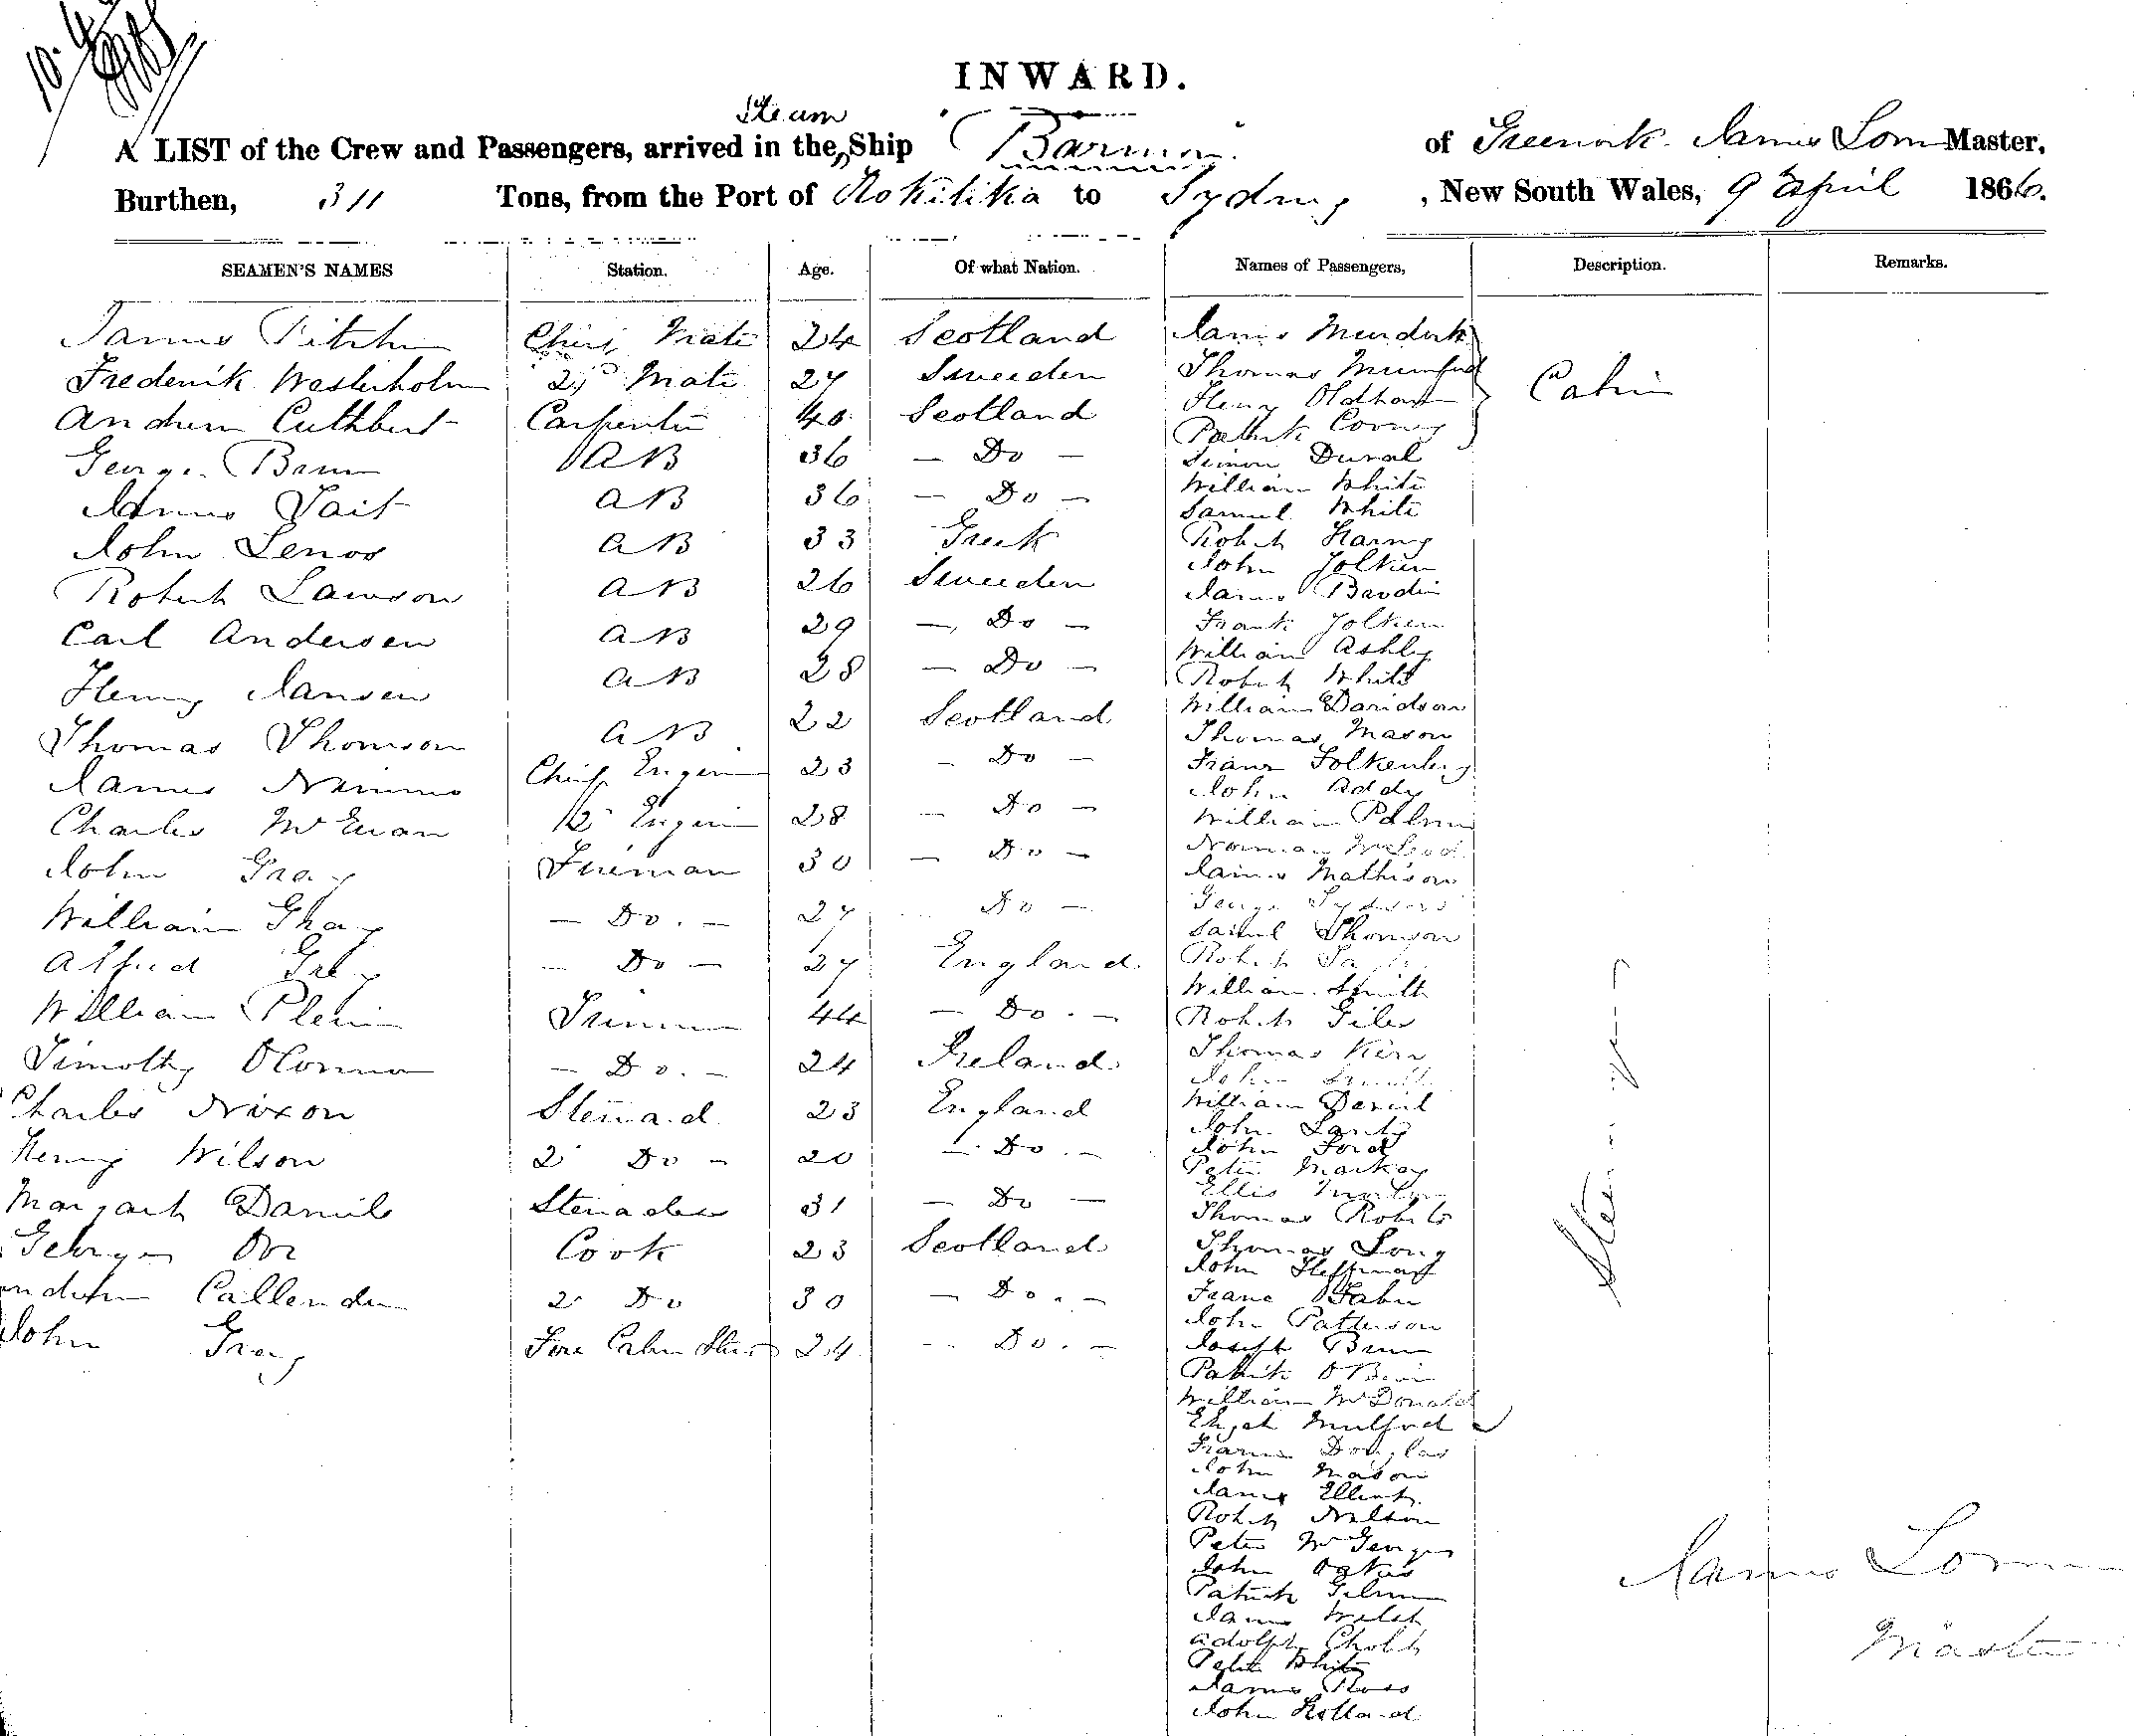 INWARD.
Steam
A LIST of the Crew and Passengers, arrived in the Ship of Greenock James Master,
Burthen, 311 Tons, from the Port of Hokitika to Sydney, New South Wales, 9 April 1866.
SEAMEN'S NAMES Station. Age. Of what Nation. Names of Passengers, Description. Remarks.
James Chief Mate 24 Scotland James Murdock
Frederik Westerholm 2nd Mate 27 Sweeden Thomas Mumford Cabin
Henry Oldham
Andrew Cuthbert Carpenter 40 Scotland Patrick
George AB 36 — Do — Simon Duval
James Tait AB 36 — Do — William White
Samuel White
John Lenos AB 33 Greek Robert
John
Robert Lawson AB 26 Sweeden James
Carl Andersen AB 29 — Do — Frank
William Ashley
Henry Jansen AB 28 — Do — Robert White
Thomas Thomson AB 22 Scotland William Davidson
Thomas Mason
James Nimmo Chief Engineer 23 — Do — Franz
John Addy
Charles McEwan 2 Engineer 28 — Do — William Palmer
John Gray Fireman 30 — Do — Norman McLeod
James Mathison
William Gray — Do. — 27 Do — George
Samuel Thomson
Alfred Grey — Do — 27 England Robert
William Smith
William Trimmer 44 — Do. — Robert Giles
Timothy OConnor — Do. — 24 Ireland Thomas Kerr
John Smith
Charles Nixon Steward 23 England William David
John
Henry Wilson 2 Do — 20 — Do. — John Ford
Peter Mackay
Ellis
Margaret Daniels Stewardess 31 — Do — Thomas Roberts
George Orr Cook 23 Scotland Thomas Long
John Heffernan
Callender 2 Do 30 — Do. — Franc
John Patterson
John Gray Fore Cabin Stew 24 — Do. — Joseph
Patrick OBrien
William McDonald
Elijah Mulford
Francis Douglas
John Mason
James Elliott
Robert Nelson
Peter McGeorge
John Oakes
Patrick
James Welsh
Adolph
Peter White
James Ross
John Holland
James
Master